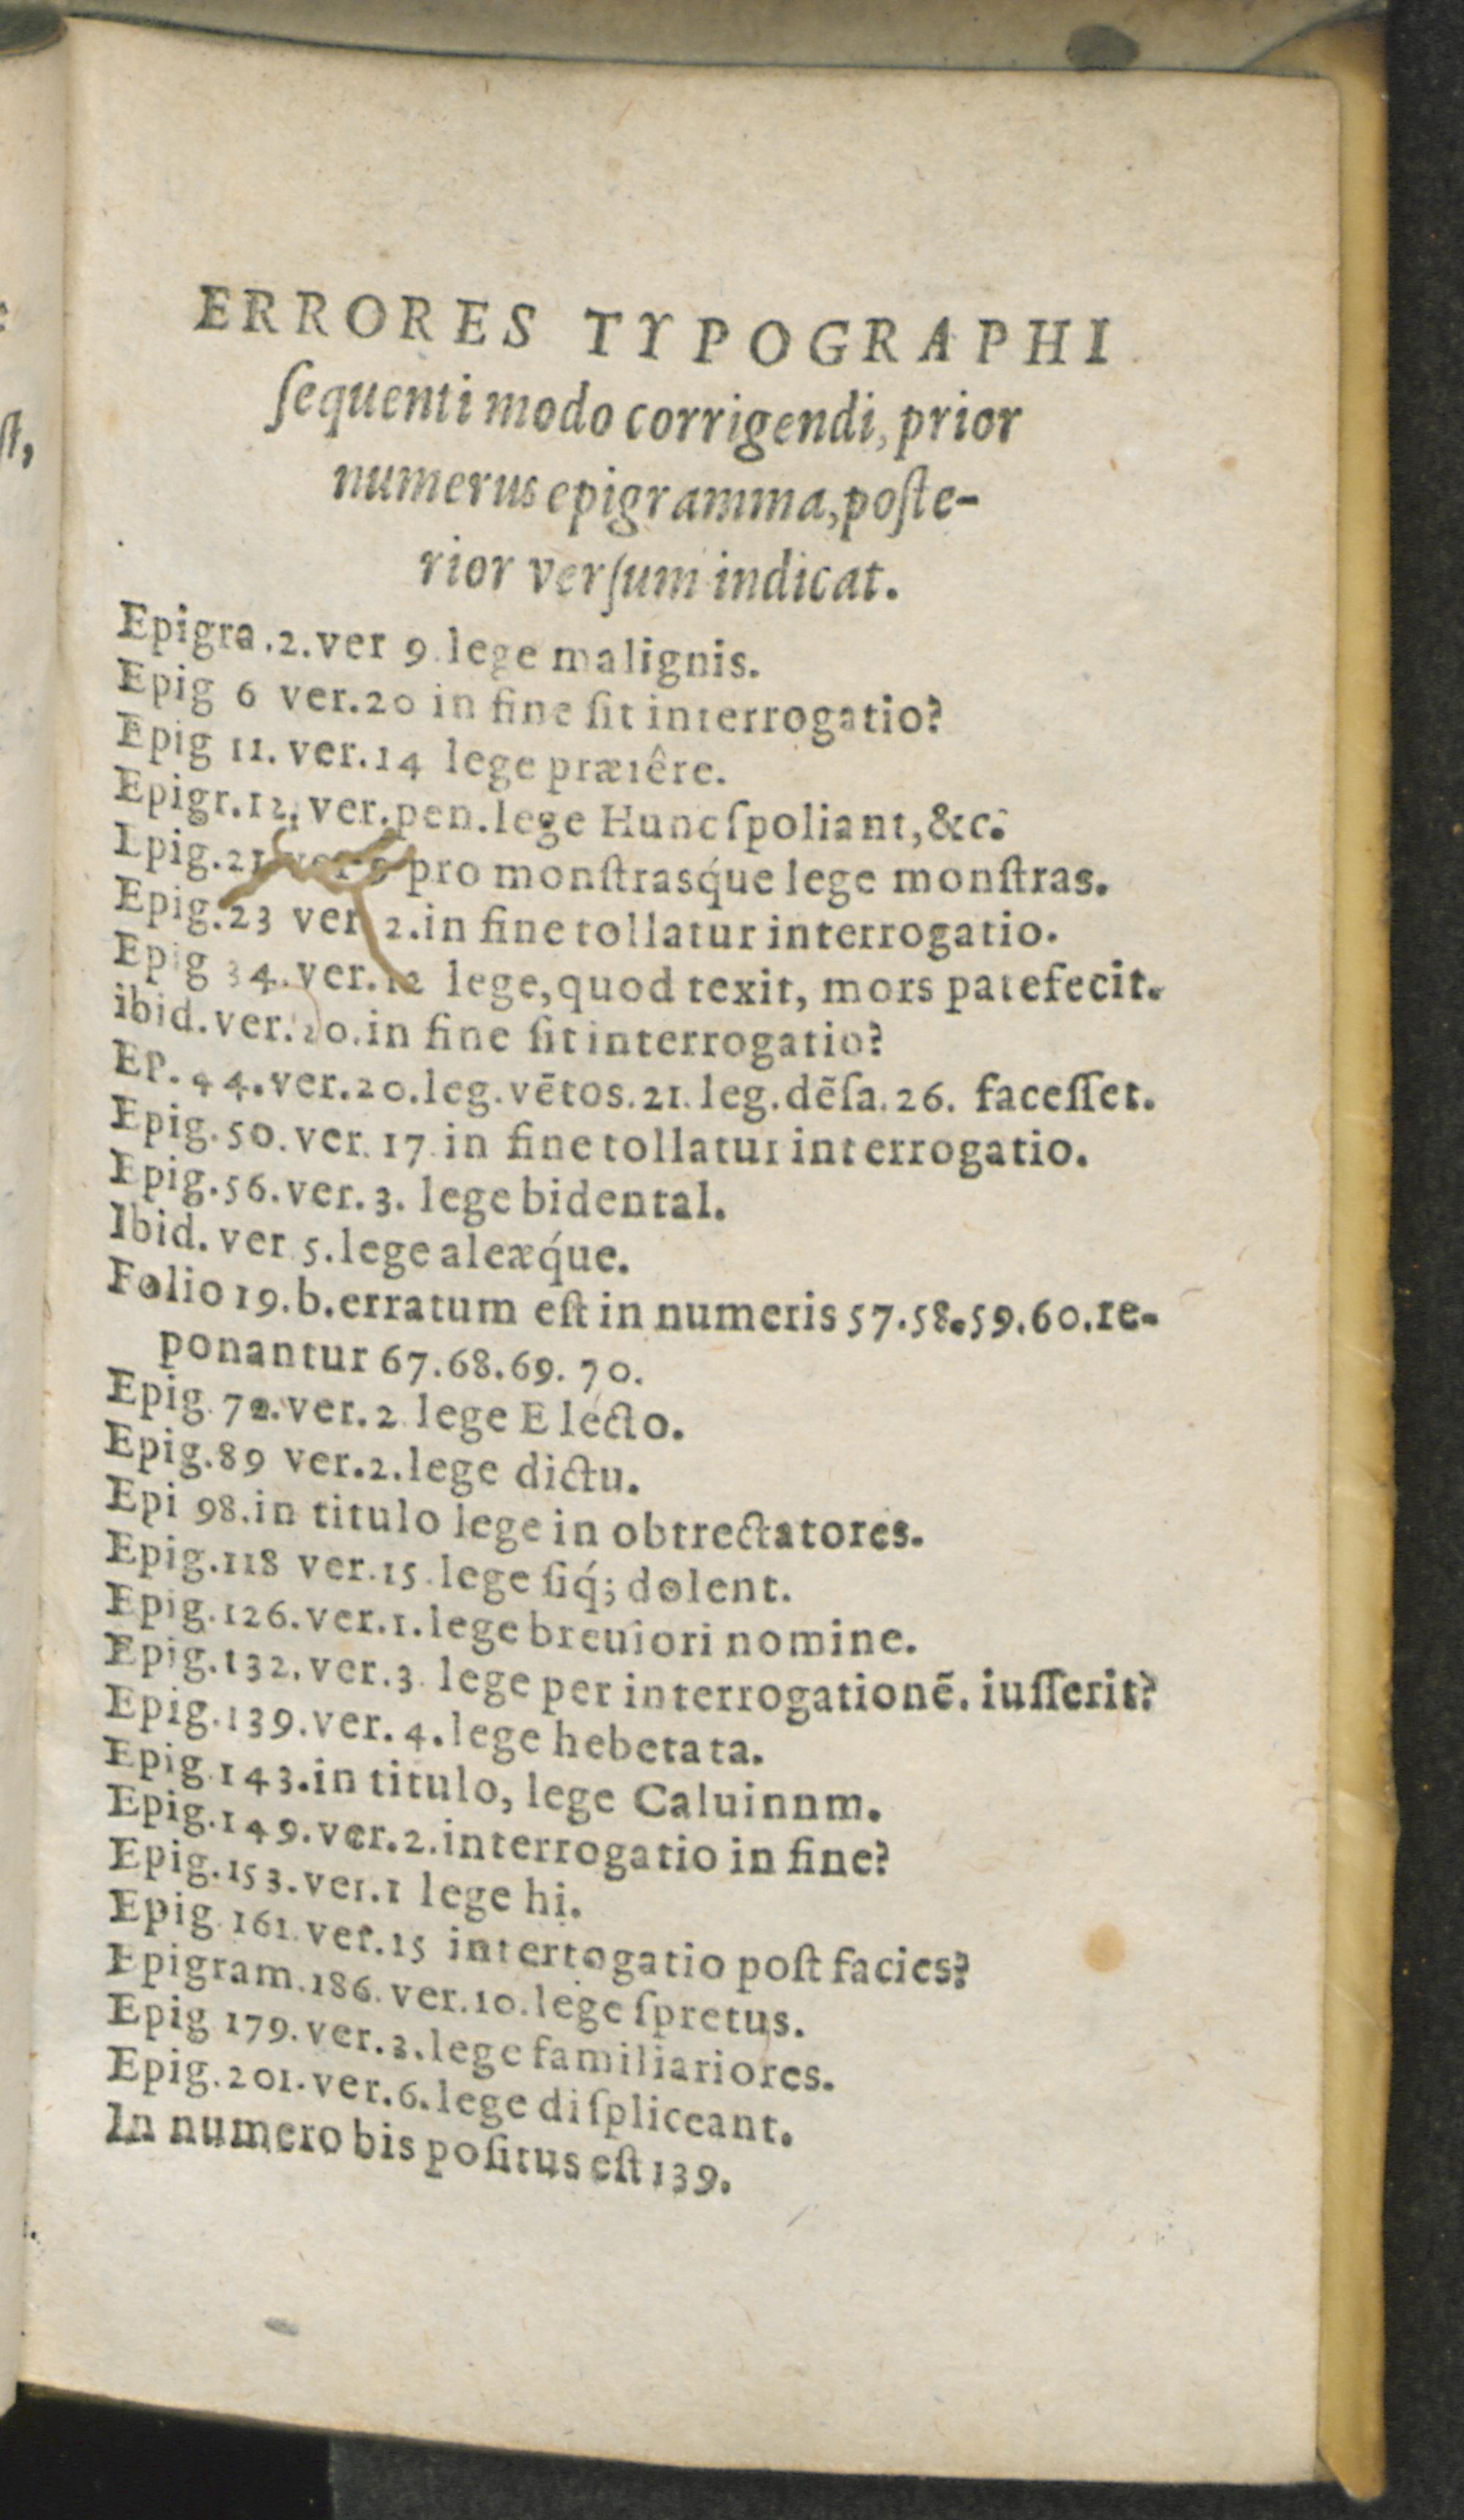 ERRORES TYPOGRAPHI
ſequenti modo corrigendi, prior
numerus epigramma, poſte-
rior verſum indicat.
Epigra.2.ver 9 lege malignis.
Epig 6 ver.20 in fine ſit interrogatio?
Epig 11. ver.14 lege præiêre.
Epigr.12. ver.pen.lege Hunc ſpoliant,&c.
Epig.21 pro monſtrasq́ue lege monſtras.
Epig.23 ver 2.in fine tollatur interrogatio.
Epig 34.ver.12 lege,quod texit, mors patefecit.
ibid.ver.20.in fine ſit interrogatio?
Ep. 44.ver.20.leg.vētos.21.leg.dēſa.26. faceſſet.
Epig.50.ver.17.in fine tollatur interrogatio.
Epig.56.ver.3. lege bidental.
Ibid. ver 5.lege aleæq́ue.
Folio 19.b.erratum eſt in numeris 57.58.59.60.re-
ponantur 67.68.69.70.
Epig.72.ver.2 lege E lecto.
Epig.89 ver.2.lege dictu.
Epi 98.in titulo lege in obtrectatores.
Epig.118 ver.15.lege ſiq́; dolent.
Epig.126.ver.1.lege breuiori nomine.
Epig.132.ver.3 lege per interrogationē. iuſſerit?
Epig.139.ver.4.lege hebetata.
Epig.143.in titulo, lege Caluinnm.
Epig.149.ver.2.interrogatio in fine?
Epig.153.ver.1 lege hi.
Epig 161.ver.15 intertogatio poſt facies?
Epigram.186.ver.10.lege ſpretus.
Epig 179.ver.3.lege familiariores.
Epig.201.ver.6.lege diſpliceant.
In numero bis poſitus eſt 139.
ſt,